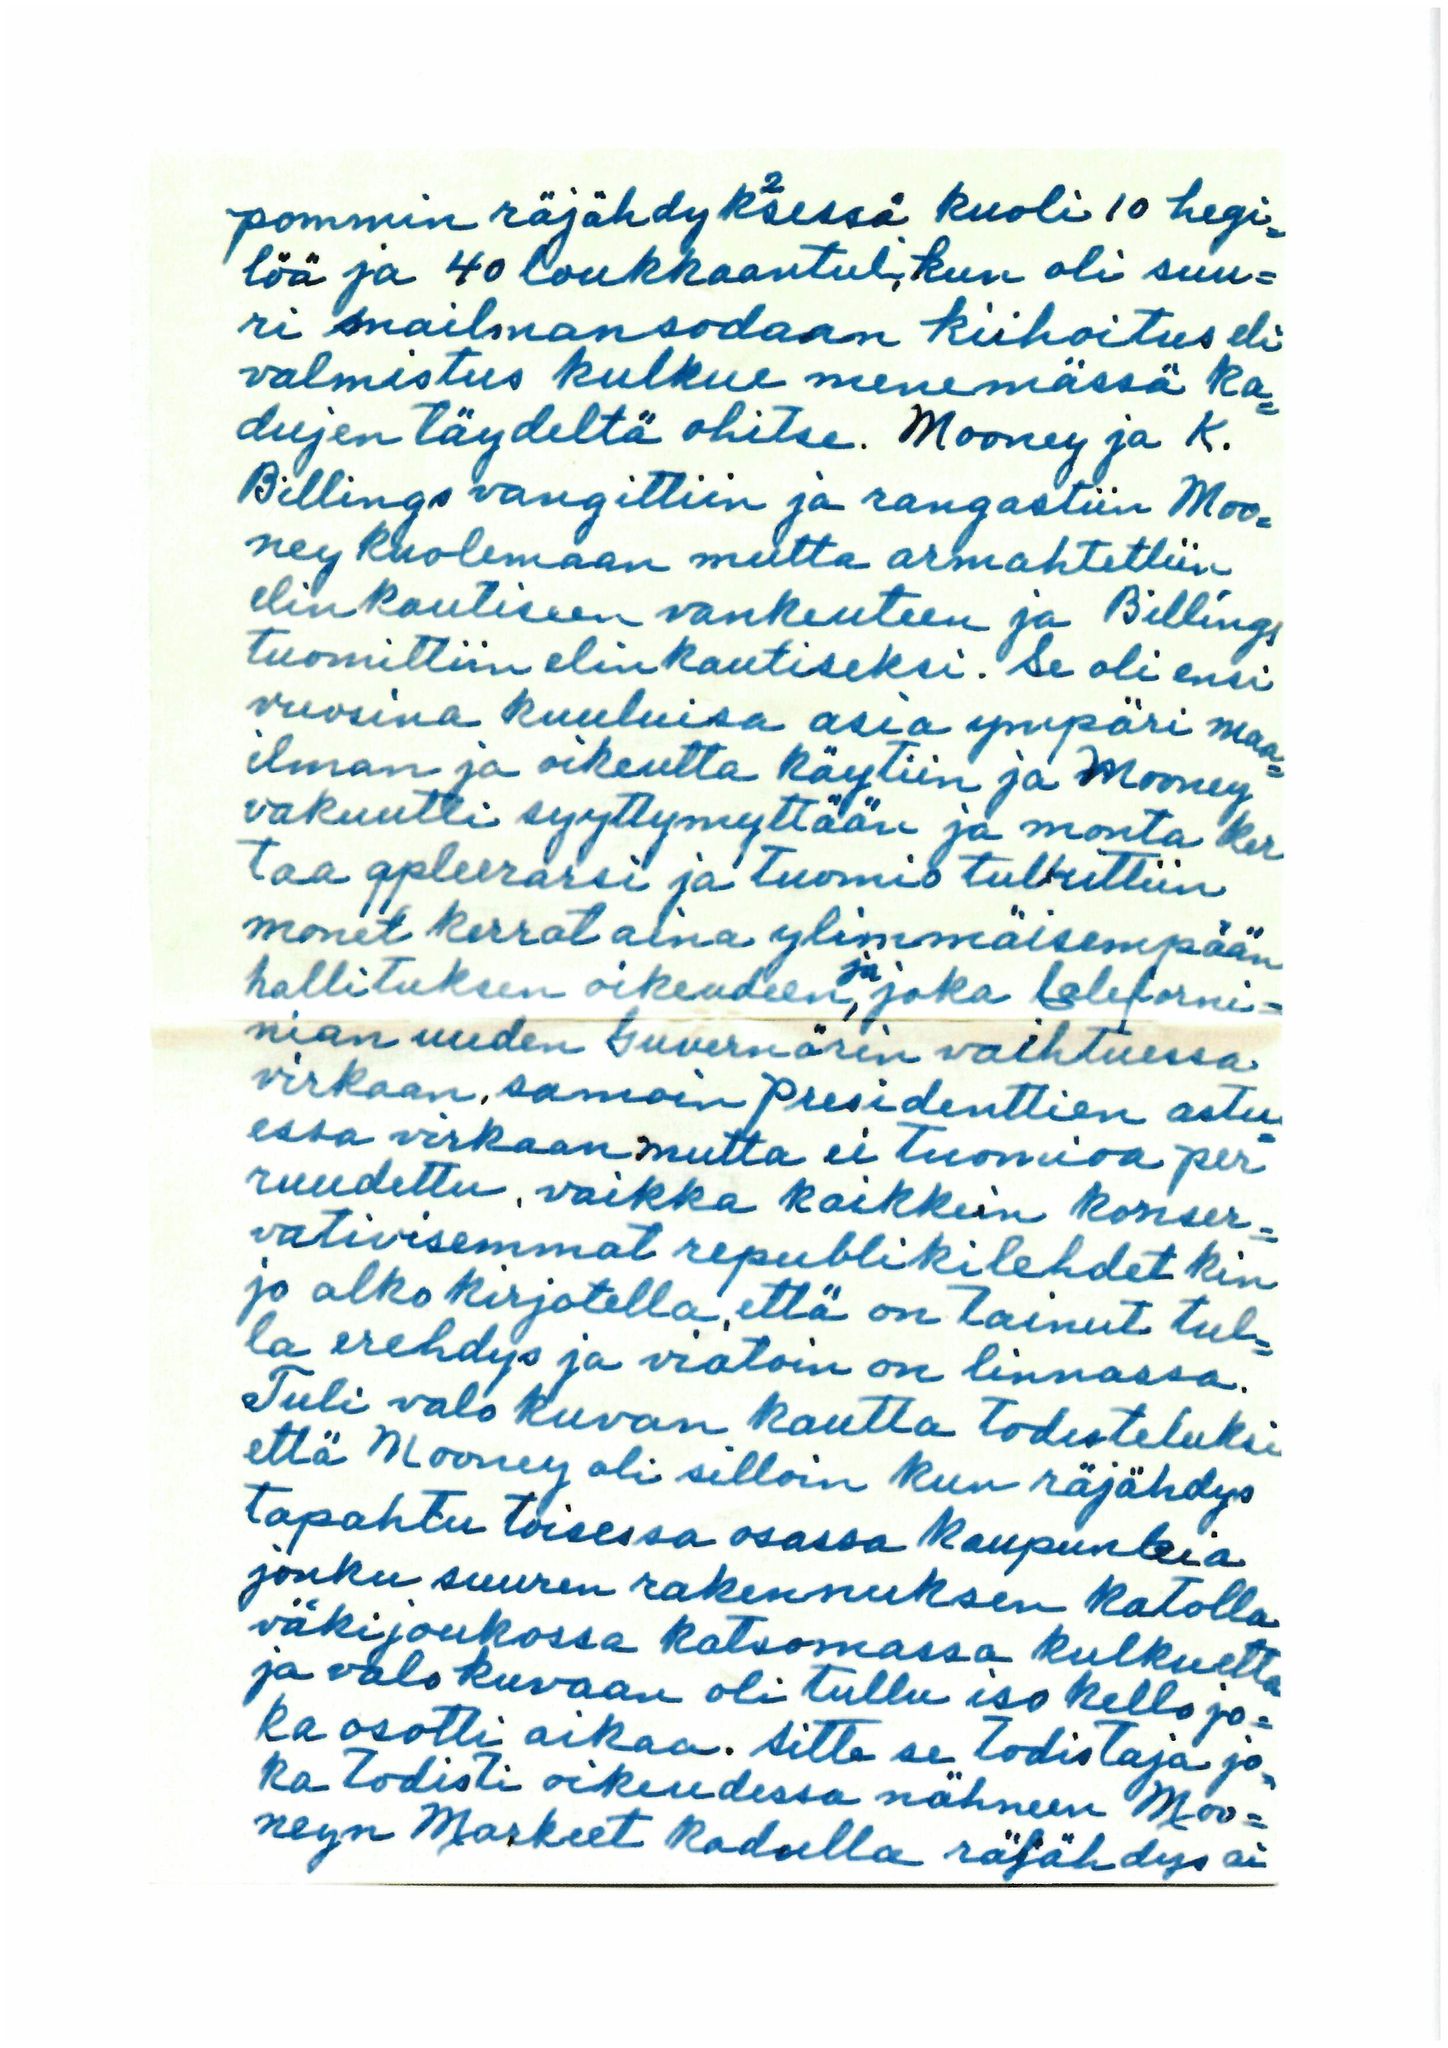 2
pommin räjähdyksessä kuoli 10 hegi=
löä ja 40 loukkaantui, kun oli suu=
ri mailmansodaan kiihoitus eli
valmistus kulkue menemässä ka=
dujen täydeltä ohitse. Mooney ja K.
Billings vangittiin ja rangastiin Moo=
ney kuolemaan mutta armahtettiin
elinkautiseen vankeuteen ja Billings
tuomittiin elinkautiseksi. Se oli ensi
vuosina kuuluisa asia ympäri maa=
ilman ja oikeutta käytiin ja Mooney
vakuutti syyttymyttään ja monta ker
taa apleerarsi ja tuomio tulkittiin
monet kerrat aina ylimmäisempään
hallituksen oikeudeen, ja joka Caleforni=
nian uuden Guvernörin vaihtuessa
virkaan, samoin presidenttien astu=
essa virkaan mutta ei tuomioa per
ruudettu, vaikka kaikkein konser=
vativisemmat republikilehdet kin
jo alko kirjotella, että on tainut tul=
la erehdys ja viatoin on linnassa.
Tuli valokuvan kautta todisteluksi
että Mooney oli silloin kun räjähdys
tapahtu toisessa osassa kaupunkia
jonku suuren rakennuksen katolla
väkijoukossa katsomassa kulkuetta
ja valokuvaan oli tullu iso kello jo=
ka osotti aikaa. Sitte se todistaja jo=
ka todisti oikeudessa nähneen Moo=
neyn Markeet kadulla räjähdys ai